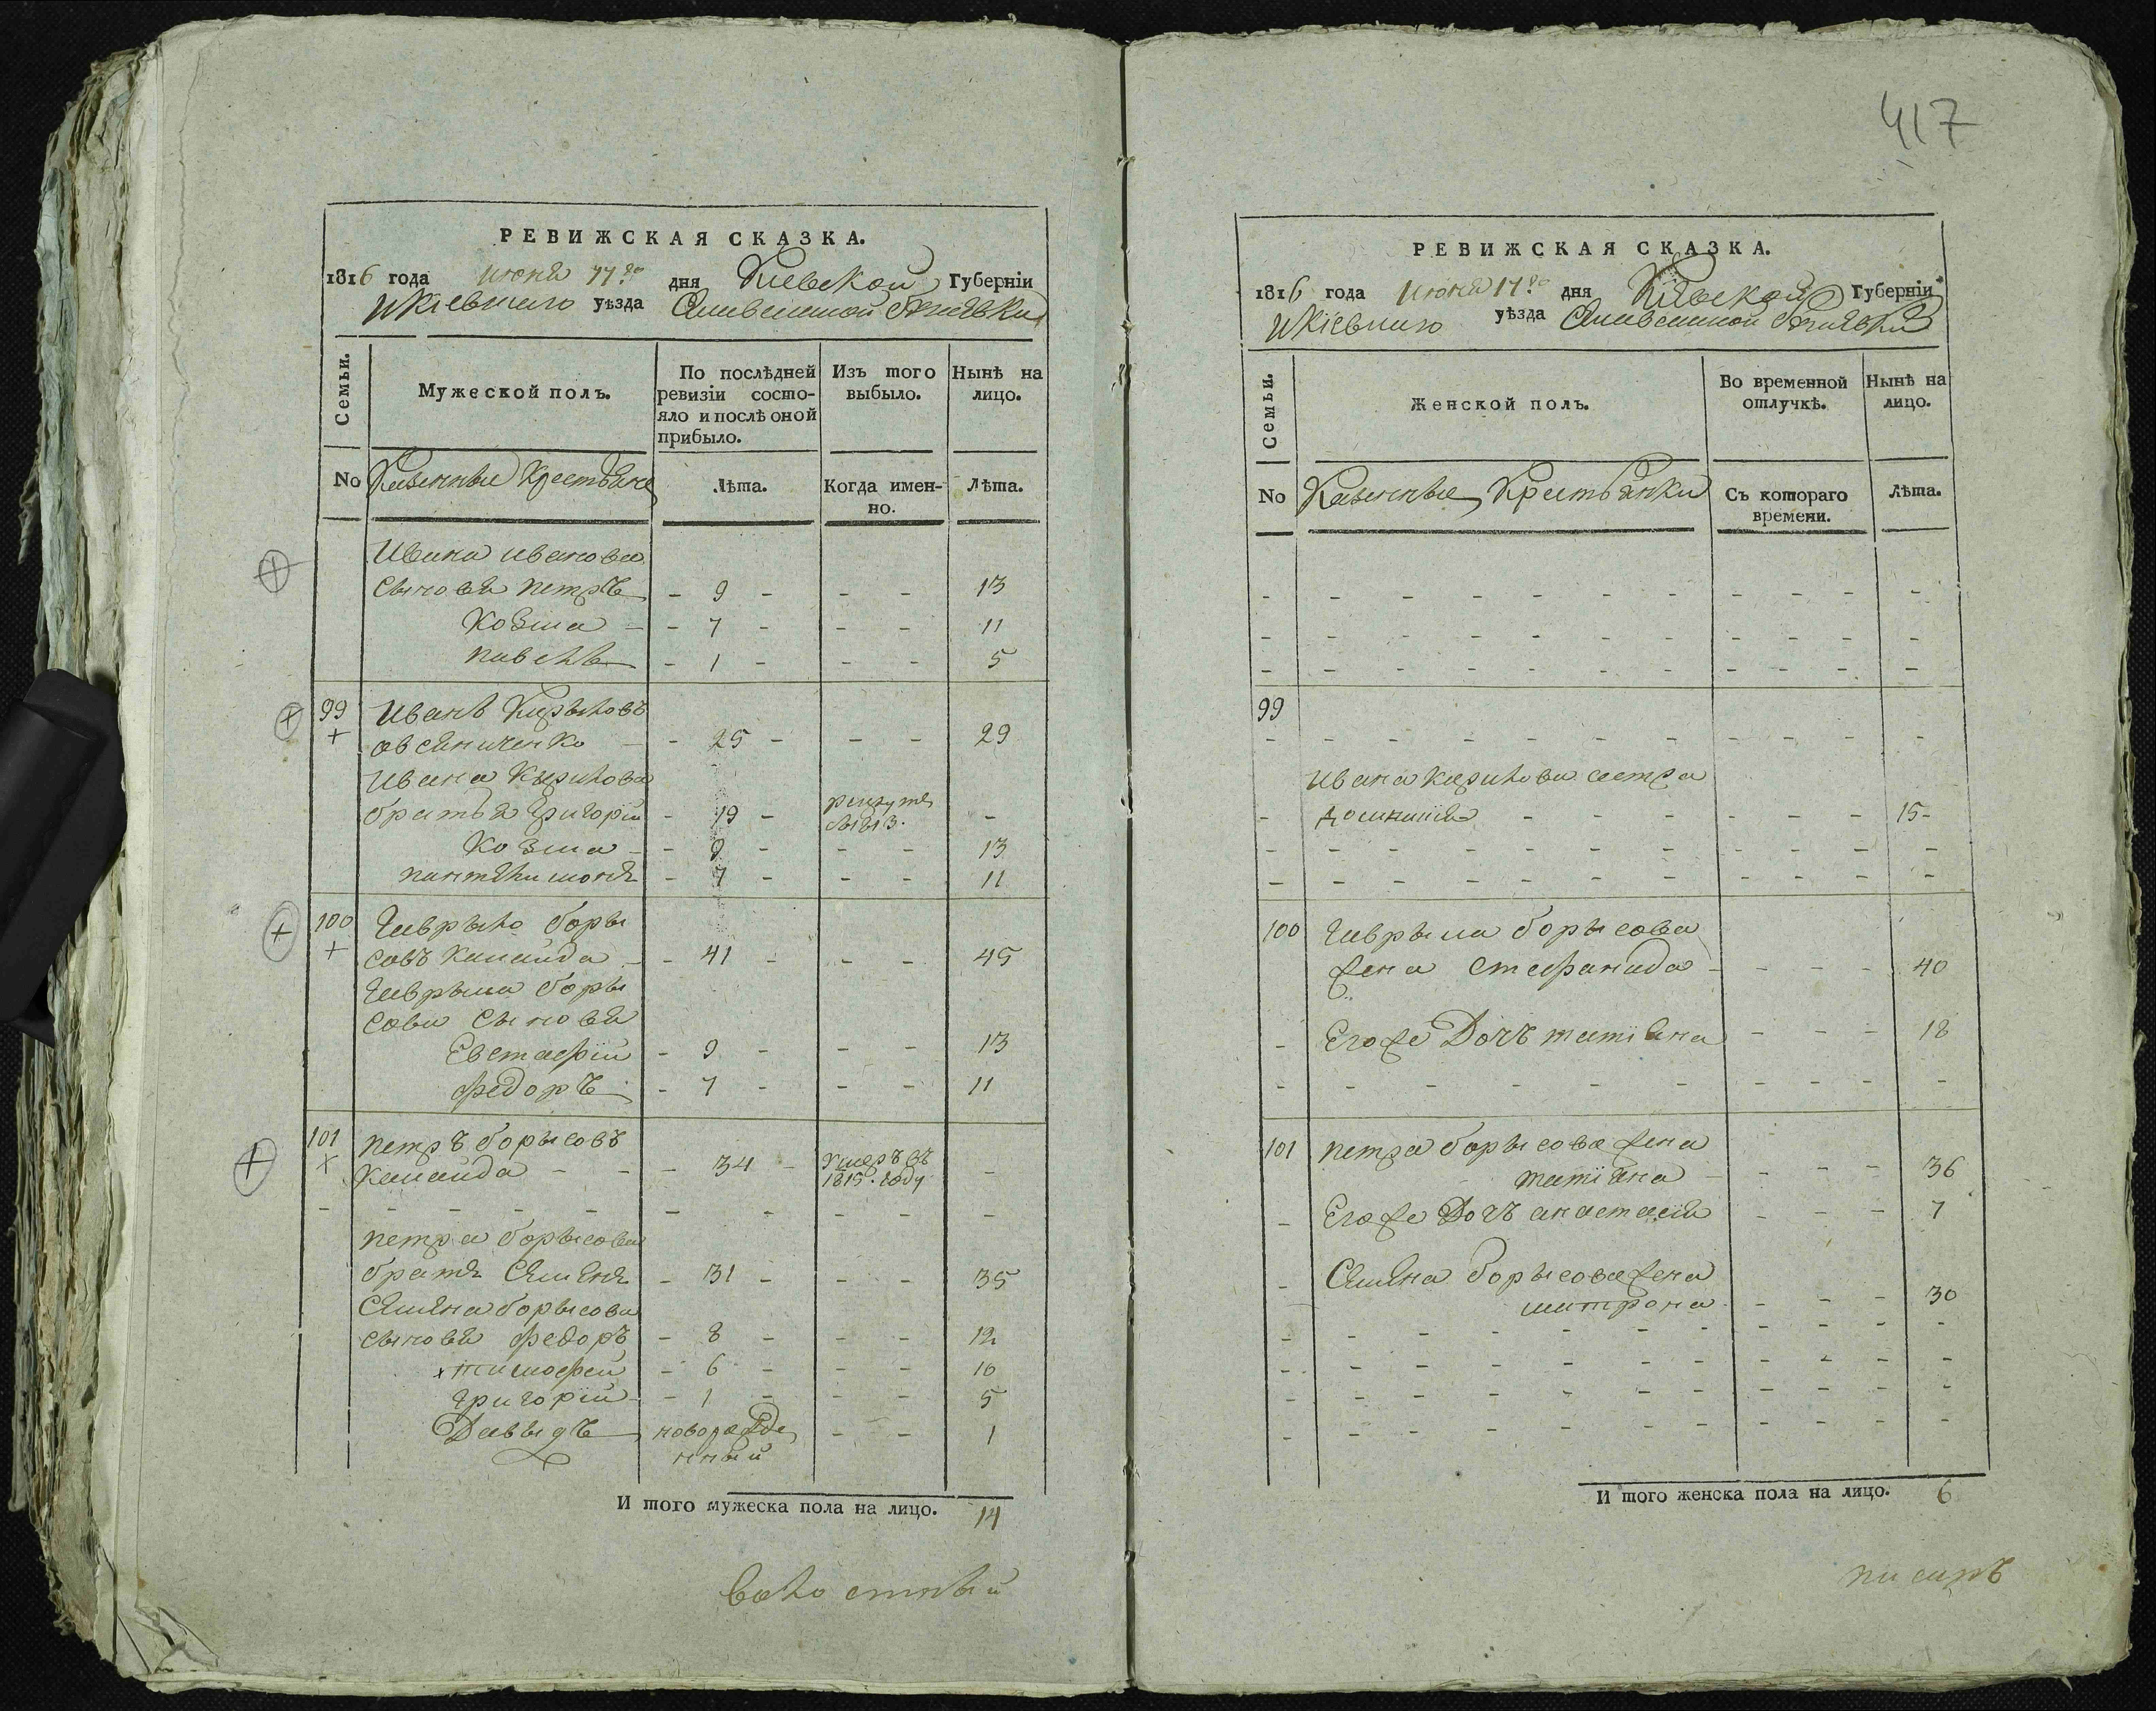 417
РЕВИЖСКАЯ СКАЗКА.
1816 года июня 17го дня Киевской Губерніи
Икіевъскаго уѣзда
Семьи.
Мужеской полъ.
По послѣдней ревизіи состо-
яло и послѣ оной
прибыло.
Изъ того
выбыло.
Нынѣ на
лицо.
No Казенные Крестьяне
Лѣта.
Когда имен-
но.
Лѣта.
Ивана иванова
сыновья петръ - 9 - - - 13
Козма - - 7 - - - 11
павелъ - 1 - - - 5
99 Иванъ Кирыловъ
овсяниченко - - 25 - - - 29
Ивана Кирилова
братья григорій - 19 - рекрутъ 1813. -
Козма - - 9 - - - 13
пантелимонъ - 7 - - - 11
100 Гаврыло боры
совъ Канаида - - 41 - - - 45
Гаврыла боры
сова сыновья
Евстафій - 9 - - - 13
федоръ - 7 - - - 11
101 петръ борысовъ
Канаида - - - 34 - умеръ въ 1815. году -
петра борысова
братъ Семенъ - 31 - - - 35
Семена борысова
сыновья федоръ - 8 - - - 12
тимофей - 6 - - - 10
григорій - 1 - - - 5
Давыдъ новорожде
нный - - 1
И того мужеска пола на лицо. 14
волостный
РЕВИЖСКАЯ СКАЗКА.
1816 года июня 17го дня Кіевской Губерніи
уѣзда
Семьи.
Женской полъ.
Во временной
отлучкѣ.
Нынѣ на
лицо.
No Казенные Крестьянки
Съ котораго
времени.
Лѣта.
99
Ивана Кирилова сестра
- - - - - - - 15-
100 Гаврыла борысова
жена Стефанида - - - - 40
- Его же Дочь татіяна - - - 18
101 петра борысова жена
татіяна - - - - 36
- Его же Дочъ анастасія - - - 7
- Семена борысова жена
матрона - - - 30
И того женска пола на лицо. 6
писарь